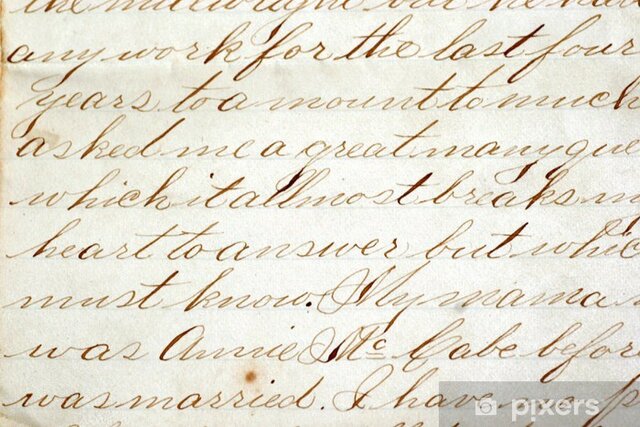 the millwright but he
any work for the last four
years to a mount to much
asked me a great many que
which it allmost breaks m
heart to answer but whic
must know. My mama
was Annie Mc Cabe befor
was married. I have
pixers